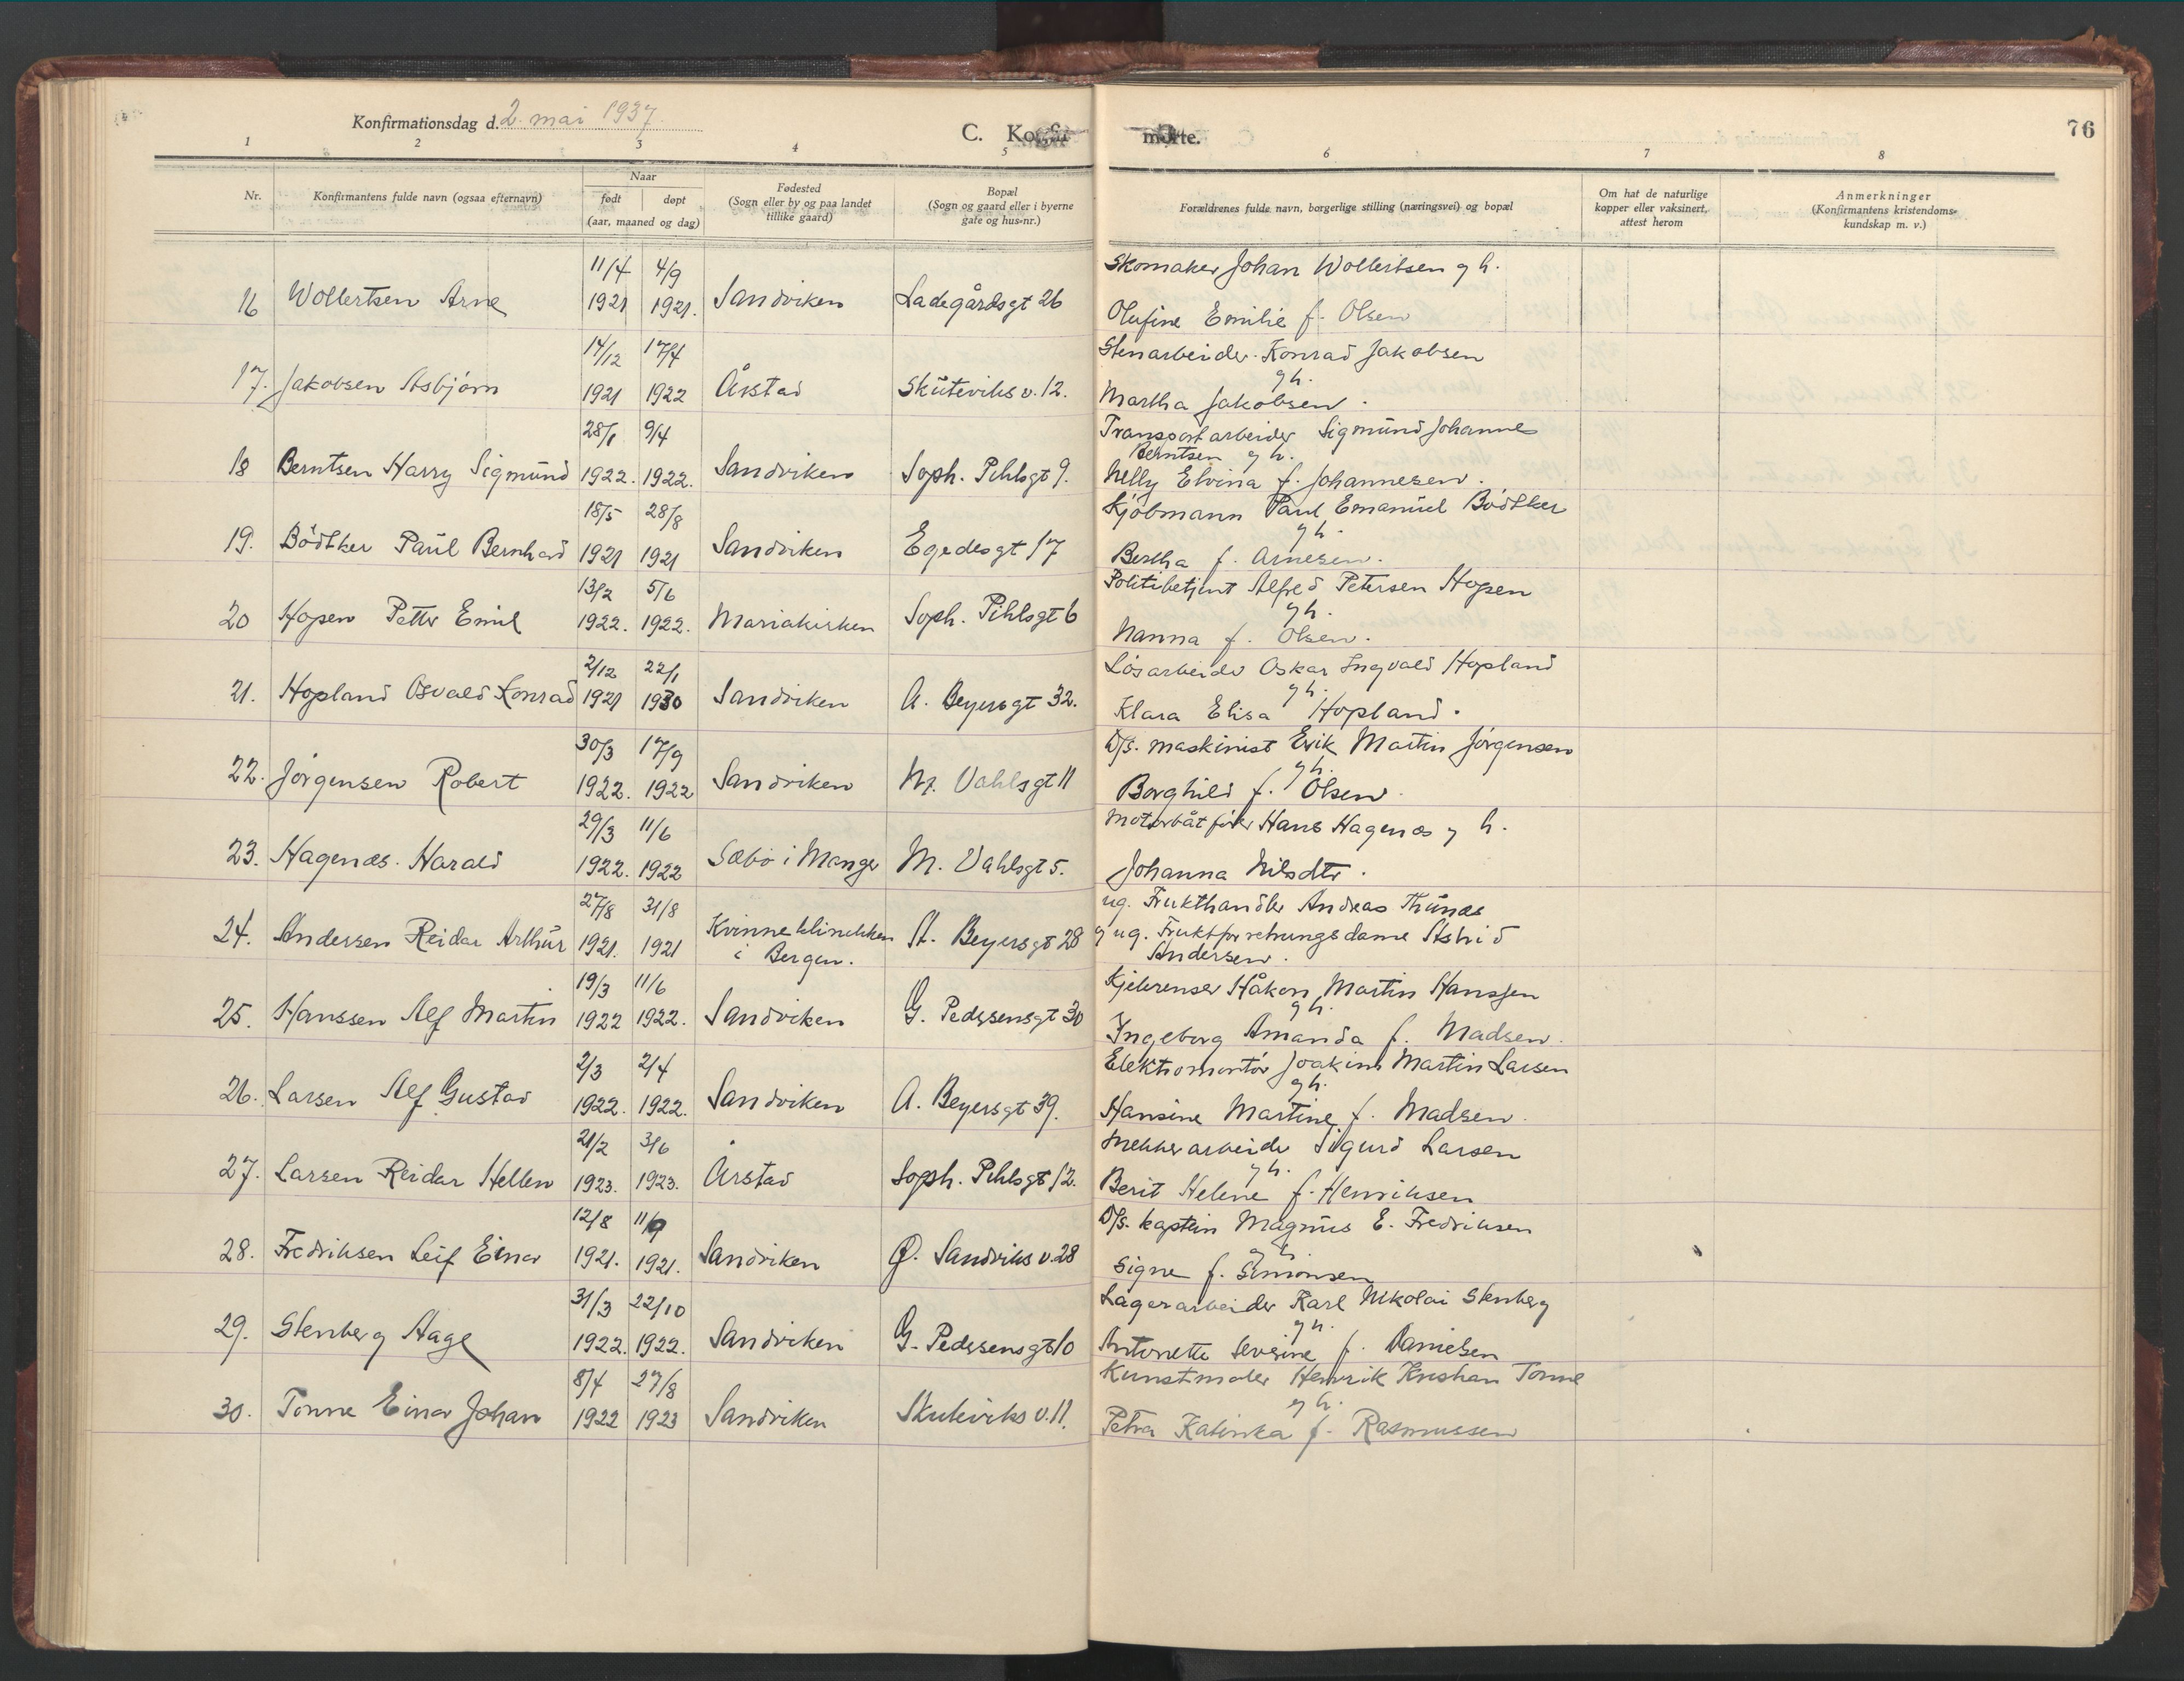 Konfirmationsdag d. 2. mai 1937.
C. Konfir
mørte.
76
1 2 3 4 5 6 7 8
Nr.
Konfirmantens fulde navn (ogsaa efternavn)
Naar
født døpt
(aar, maaned og dag)
Fødested
(Sogn eller by og paa landet
tillike gaard)
Bopæl
(Sogn og gaard eller i byerne
gate og hus-nr.)
Forældrenes fulde navn, borgerlige stilling (næringsvei) og bopæl
Om hat de naturlige
kopper eller vaksinert,
attest herom
Anmerkninger
(Konfirmantens kristendoms-
kundskap m. v.)
11/4 4/9 Skomaker Johan Wollertsen g h.
16 Wollertsen Arne 1921 1921. Sandviken Ladegårdsgt 26
Olufine Emilie f. Olsen
14/12 17/4 Stenarbeider Konrad Jakobsen
g h.
17. Jakobsen Asbjörn 1921 1922 Årstad Skuteviks v. 12. Martha Jakobsen.
28/1 9/4 Transportarbeider Sigmund Johannes
Berntsen g h.
18 Berntsen Harry Sigmund 1922. 1922. Sandviken Soph. Pihlsgt 9. Nelly Elvina f. Johannesen.
18/5 28/8 Kjöbmann Paul Emanuel Bödtker
g h.
19. Bödtker Paul Bernhard 1921 1921 Sandviken Egedesgt 17 Bertha f. Arnesen.
13/2 5/6 Politibetjent Alfred Petersen Hopen
g h.
20 Hopen Petter Emil 1922. 1922. Mariakirken Soph. Pihlsgt 6 Nanna f. Olsen.
2/12 22/1 Lösarbeider Oskar Ingvald Hopland
g h.
21. Hopland Osvald Konrad 1921 1930 Sandviken A. Beyersgt 32. Klara Elisa Hopland.
30/3 17/9 D/s. maskinist Erik Martin Jörgensen
g h.
22. Jörgensen Robert 1922. 1922 Sandviken M. Vahlsgt 11 Borghild f. Olsen.
29/3 11/6 Motorbåtförer Hans Hagenæs g h.
23. Hagenæs. Harald 1922. 1922 Sæbö i Manger M. Vahlsgt 5. Johanna Nilsdtr.
27/8 31/8 Kvinneklinikken ug. Frukthandler Andreas Thunæs
24. Andersen Reidar Arthur 1921. 1921 i Bergen. A. Beyersgt 28 g ug. Fruktforretningsdame Astrid
Andersen.
19/3 11/6 Kjelerenser Håkon Martin Hanssen
g h.
25. Hanssen Alf Martin 1922 1922. Sandviken G. Pedersensgt 30 Ingeborg Amanda f. Madsen.
2/3 2/4 Elektromontör Joakim Martin Larsen
g h.
26. Larsen Alf Gustav 1922. 1922. Sandviken A. Beyersgt 39. Hansine Martine f. Madsen.
21/2 3/6 Mekkerarbeider Sigurd Larsen
g h.
27. Larsen Reidar Hellen 1923. 1923. Årstad Soph. Pihlsgt 12. Berit Helene f. Henriksen
12/8 11/9 D/s. kaptein Magnus E. Fredriksen
g h.
28. Fredriksen Leif Einar 1921. 1921. Sandviken Ø. Sandviks v. 28 Signe f. Simonsen
31/3 22/10 Lagerarbeider Karl Nikolai Stenberg
g h.
29. Stenberg Aage 1922. 1922. Sandviken G. Pedersensgt 10 Antonette Severine f. Danielsen
8/4 27/8 Kunstmaler Henrik Kristian Tonne
g h.
30. Tonne Einar Johan 1922 1923 Sandviken Skuteviks v. 11. Petra Katinka f. Rasmussen